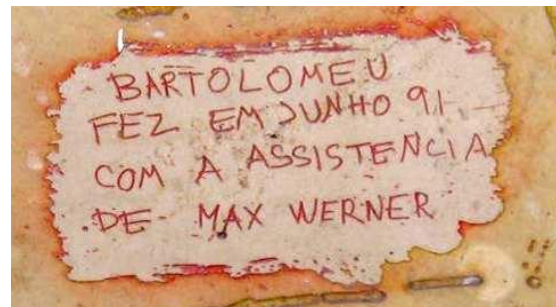 BARTOLOMEU
FEZ EM JUNHO 91
COM A ASSISTENCIA
DE MAX WERNER